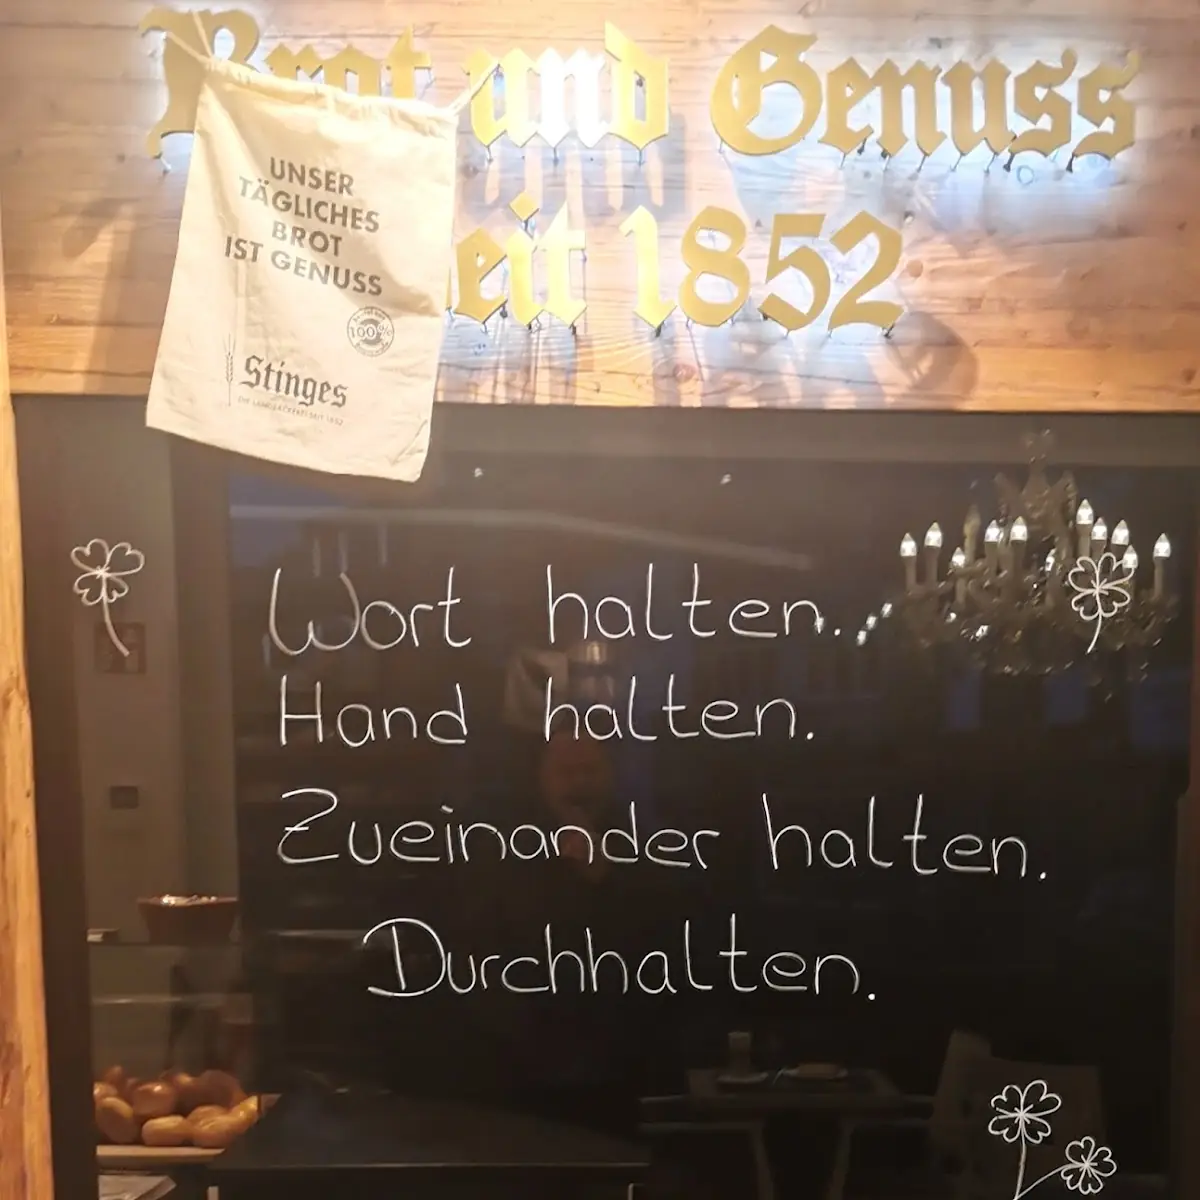 Brot und Genuss
seit 1852
UNSER
TÄGLICHES
BROT
IST GENUSS
100%
Stinges
DIE LANDBÄCKEREI SEIT 1852
Wort halten.
Hand halten.
Zueinander halten.
Durchhalten.